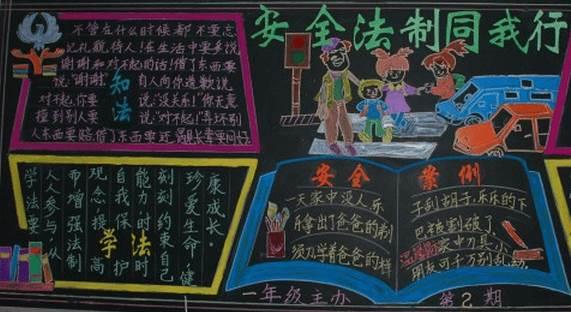 安全法制同我行
不管在什么时候都不要忘
记礼貌待人!在生活中要多说
谢谢和对不起的话!借了东西要
说"谢谢" 自人向你道歉说
对不起,你要 说:"没关系!"你无意
撞到别人要 说"对不起!"弄坏别
人东西要赔!借了东西要还
知法
康成长。
珍爱生命,健
刻刻约束自己
能力时时
自我保护
观念提高
而增强法制
人人参与,从
学法要
学法
安全 案例
一天家中没人,乐
乐拿出了爸爸的剃
须刀学着爸爸的样
子刮胡子,乐乐的下
巴被割破了。
家中刀具小
朋友可千万别乱动。
一年级主办 第2期